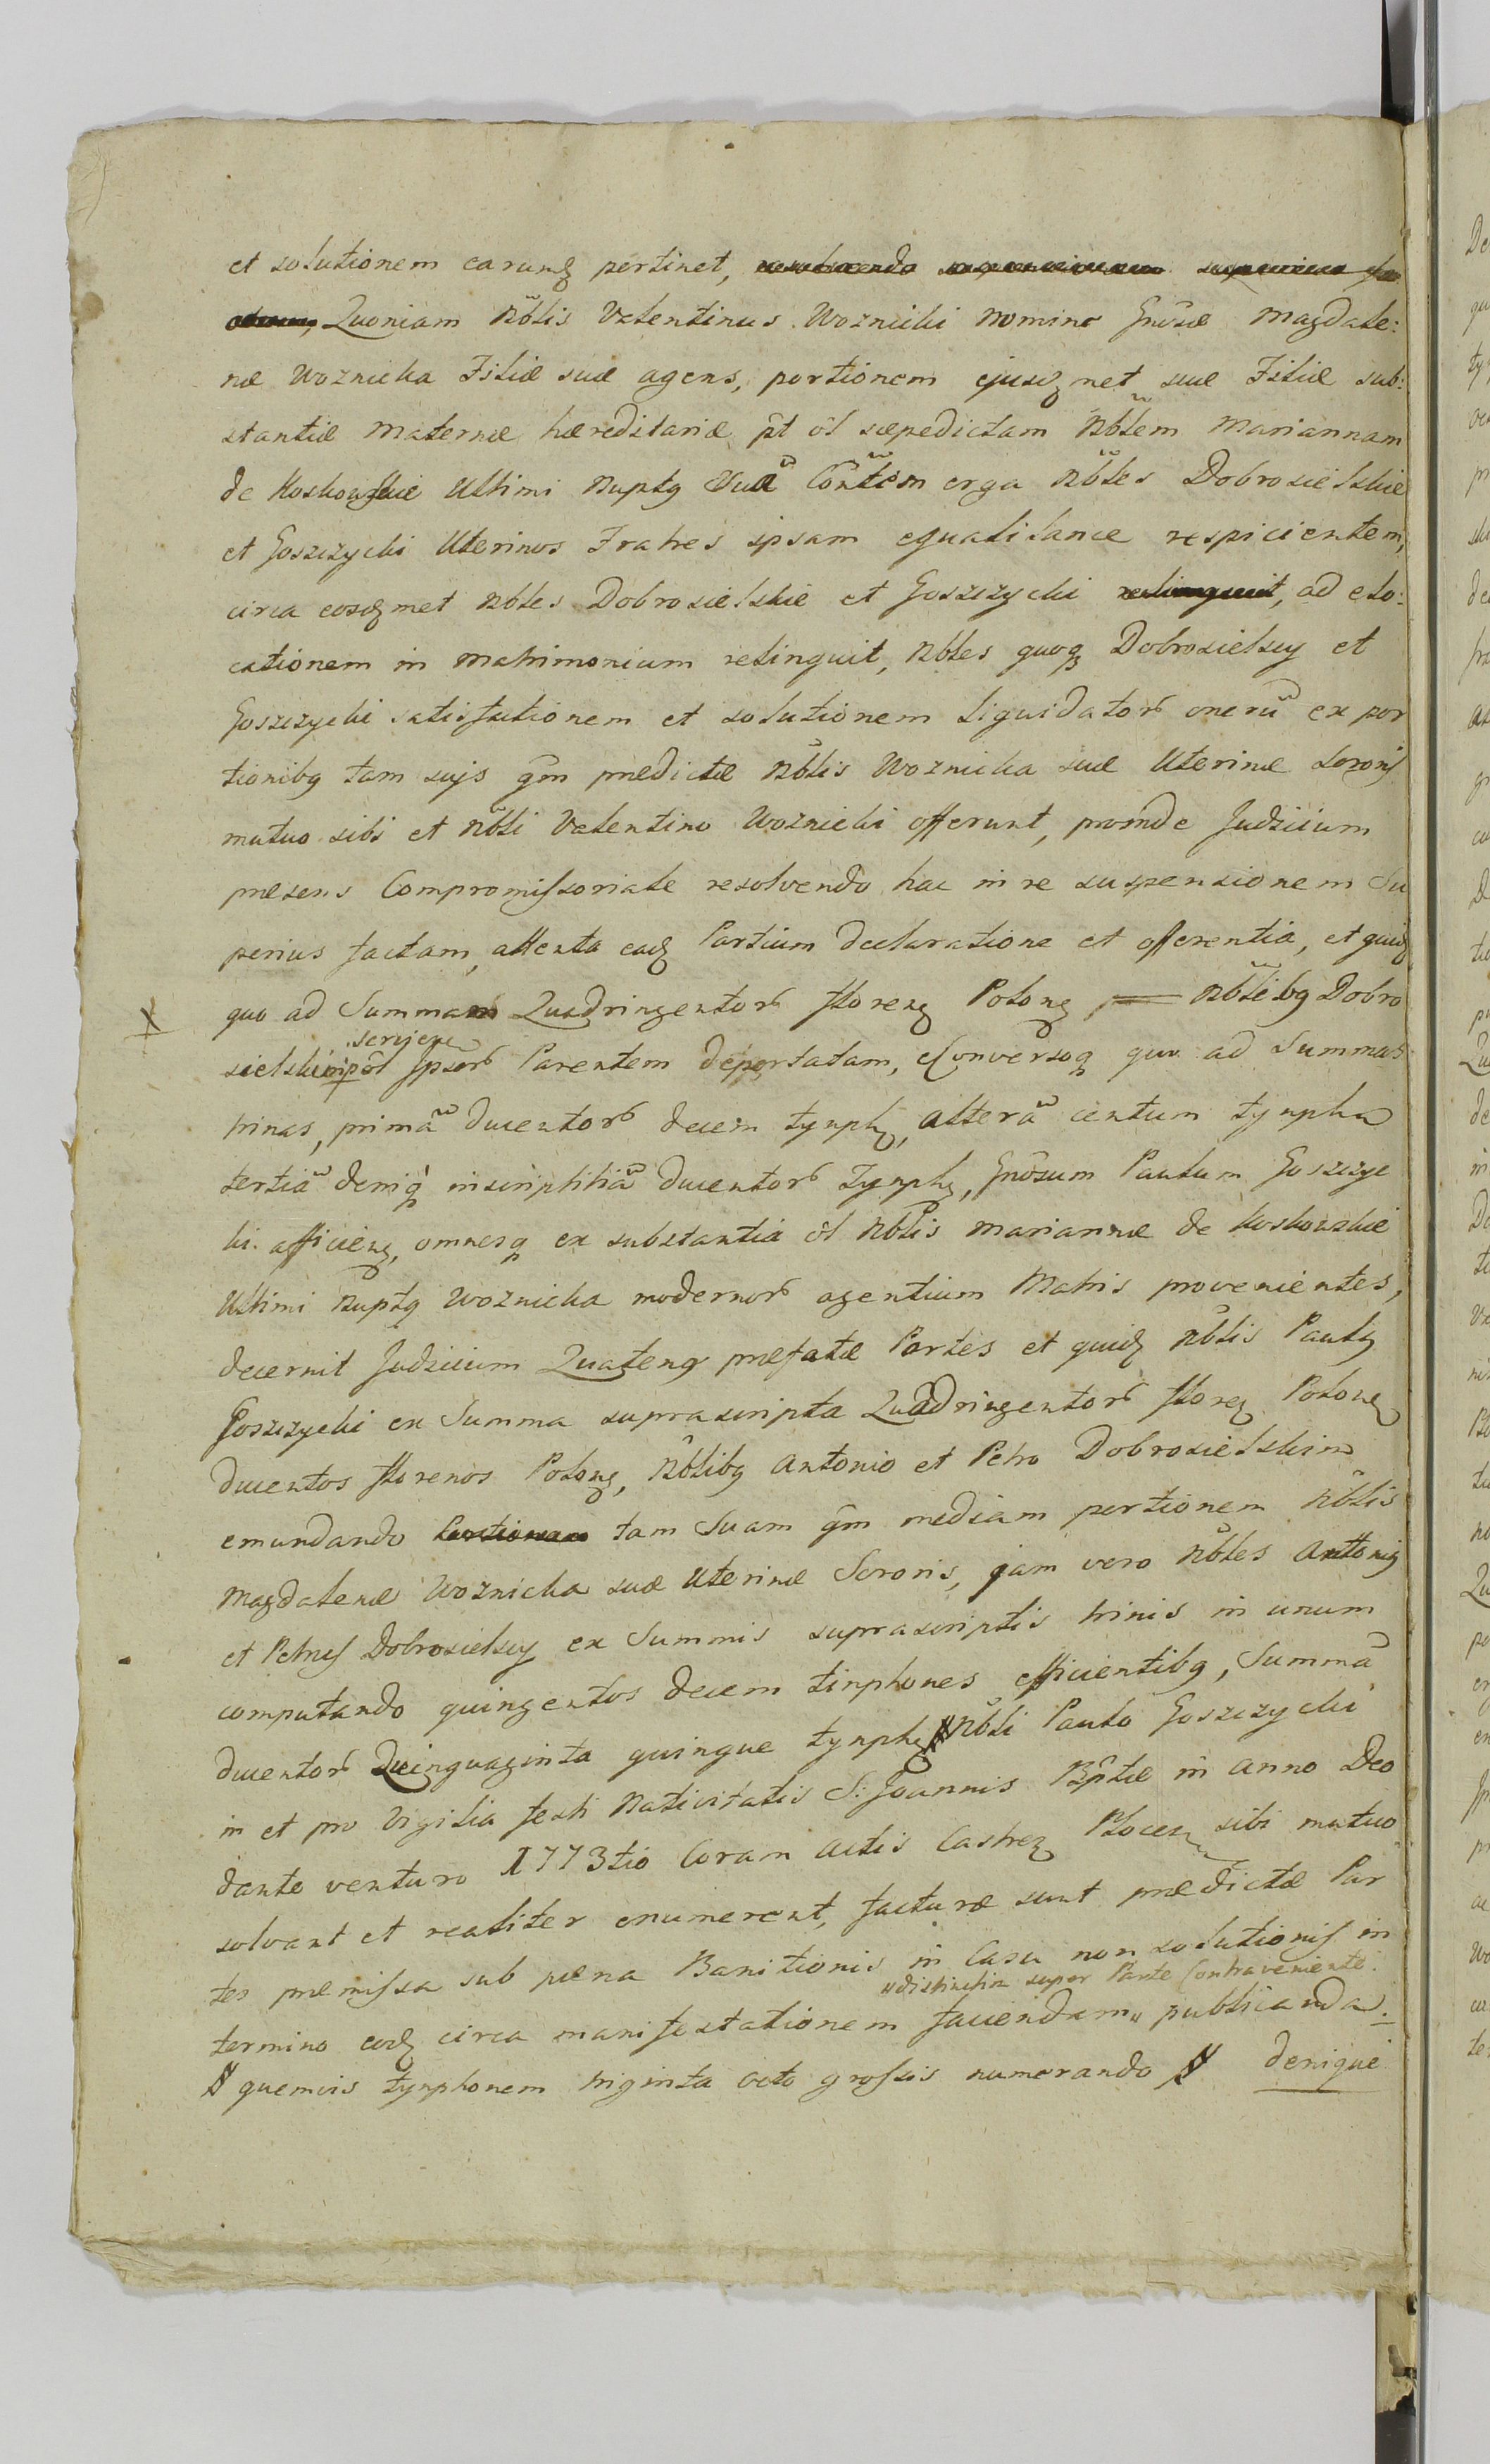 et solutionem earund pertinet,
Quoniam Nblis Valentinus Woznicki nomine Gnosæ Magdale:
næ Woznicka Filiæ suæ agens, portionem ejusdmet suæ Filiæ sub:
stantiæ Maternæ hæreditariæ, pt ol sæpedictam Nblem Mariannam
de Koskowskie Ultimi Nuptq erga Nbles Dobrosielskie
et Goszczycki Uterinos Fratres ipsam equalitance respicientem,
circa eosdmet Nbles Dobrosielskie et Goszczycki relinquit, ad elo:
cationem in Matrimonium relinquit, Nbles quoq Dobrosielscy et
Goszczycki satisfactionem et solutionem Liquidator onerũ ex por
tionibq tam sujs qm predictæ Nblis Woznicka suæ Uterinæ Sororis
mutuo sibi et Nbli Valentino Woznicki offerunt, proinde Judicium
præsens Compromissoriale resolvendo hac in re suspensionem Su
perius factam, attenta ead Partium declaratione et offerentia, et quid
quo ad Summam Quadringentor floren Polon Nblibq Dobro
serijere
sielskim pol Ipsor Parentem deportatam, eConversoq quo ad Summas
trinas, primã Ducentor decem tymph, alterã centum tympha
tertiã deniq inscriptitiã Ducentor Tymph, Gnosum Paulum Goszczyc
ki afficien, omnesq ex substantia ol Nblis Mariannæ de Koskowskie
Ultimi Nuptq Woznicka modernor agentium Matris provenientes,
decernit Judicium Quatenq præfatæ Partes et quid Nblis Paulq
Goszczycki ex Summa suprascripta Quadringentor floren Polon
ducentos florenos Polon, Nblibq Antonio et Petro Dobrosielskim
emundando Portionem tam Suam qm mediam portionem Nblis
Magdalenæ Woznicka suæ Uterinæ Sororis, jam vero Nbles Antoniq
et Petrus Dobrosielscy ex Summis suprascriptis trinis in unum
computando quingentos decem tinphones efficientibq, Summã
ducentor Quinquaginta quinque tymph # Nbli Paulo Goszczycki
in et pro Vigilia festi Nativitatis S: Joannis Bptæ in anno Deo
dante venturo 1773tio Coram Actis Castren Plocen sibi mutuo
solvant et realiter enumerent, facturæ sunt prædictæ Par
tes præmissa sub pæna Banitionis in Casu non solutionis in
"distinctim super Parte Contraveniente
termino eod circa manifestationem faciendam" publicanda.
# quemvis tymphonem triginta octo grossis numerando # denique